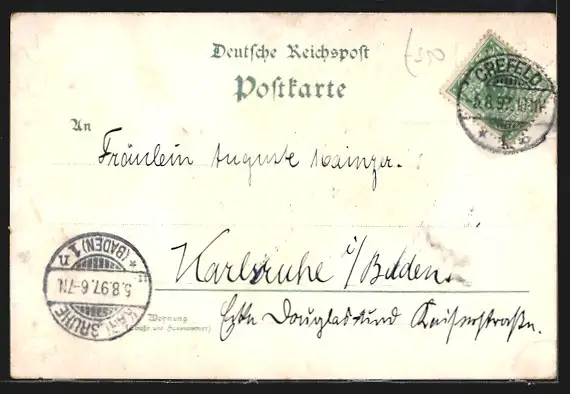 Deutsche Reichspost
Postkarte
CREFELD
5.8.97
* k *
An
Fräulein Auguste Mainzer.
Karlsruhe i/Baden.
Wohnung
(Straße und Hausnummer)
Ecke Douglas und Kaiserstraße.
KARLSRUHE
5.8.97. 6-7N.
* (BADEN) 1 n